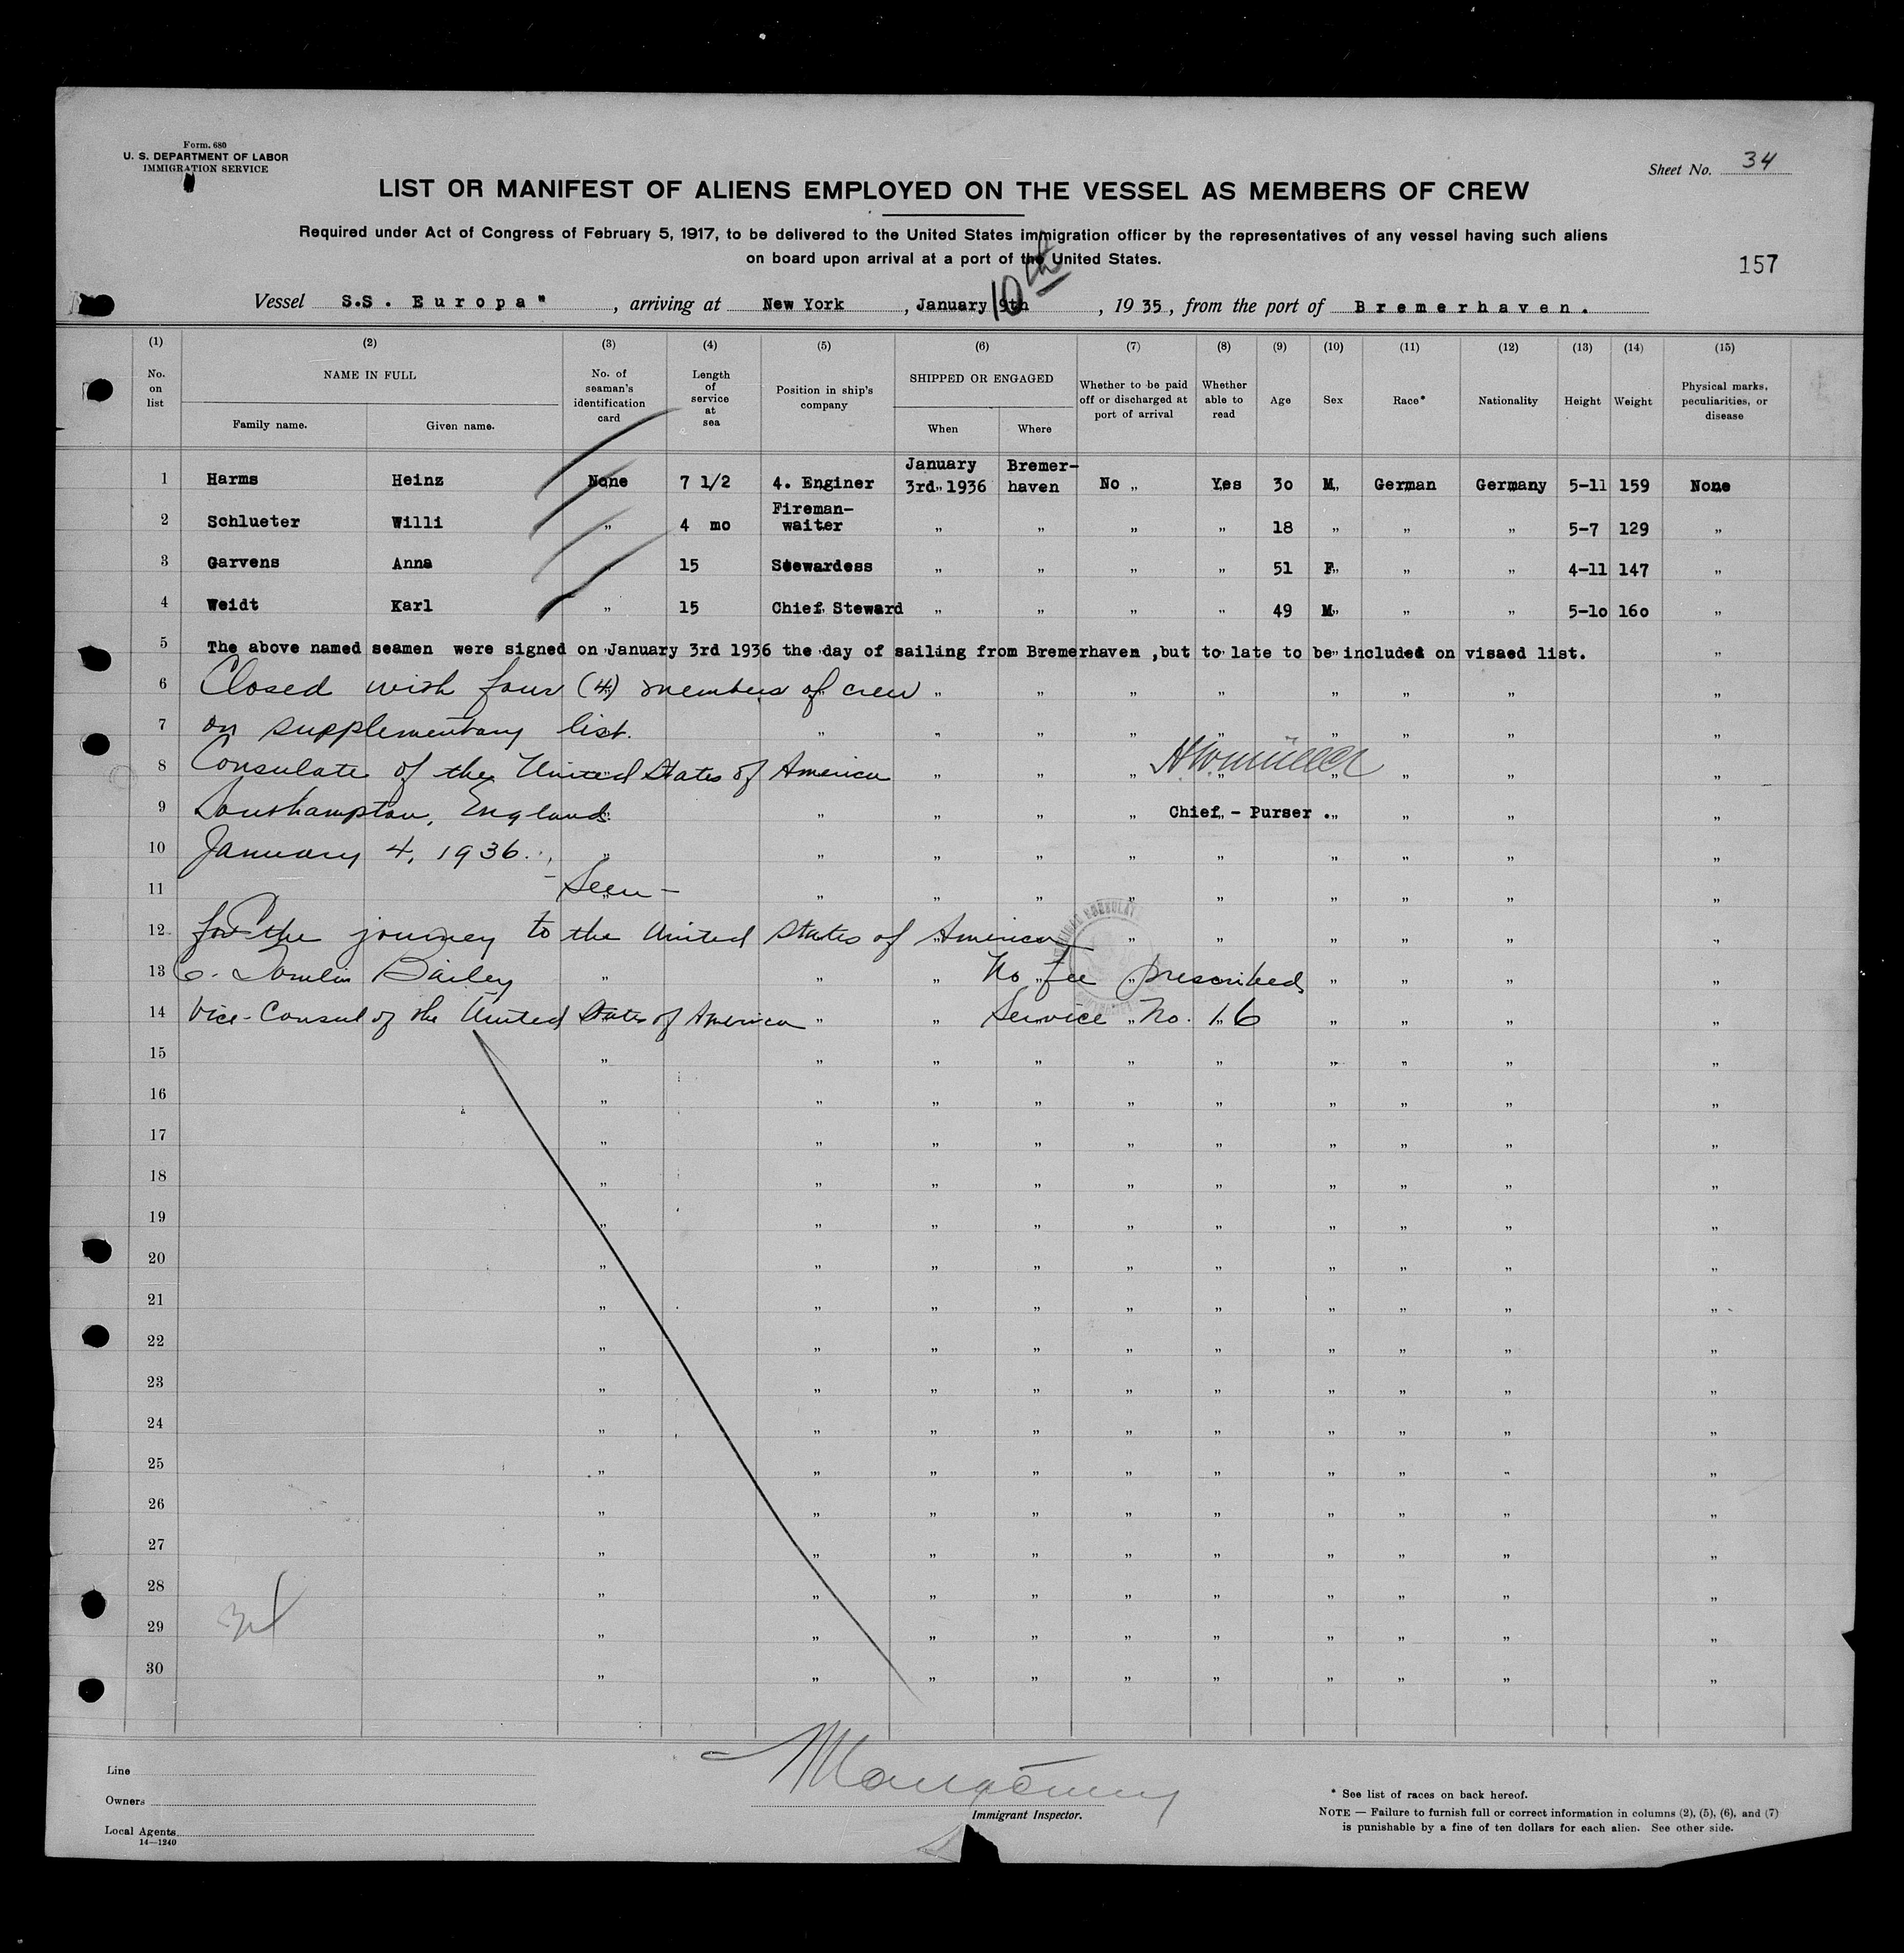 Form. 680
U. S. DEPARTMENT OF LABOR
IMMIGRATION SERVICE
Sheet No. 34
LIST OR MANIFEST OF ALIENS EMPLOYED ON THE VESSEL AS MEMBERS OF CREW
Required under Act of Congress of February 5, 1917, to be delivered to the United States immigration officer by the representatives of any vessel having such aliens
on board upon arrival at a port of the United States.
157
10th
Vessel S.S. Europa" , arriving at New York , January 9th , 1935, from the port of Bremerhaven.
(1) (2) (3) (4) (5) (6) (7) (8) (9) (10) (11) (12) (13) (14) (15)
No. on list
NAME IN FULL
Family name. Given name.
No. of seaman's identification card
Length of service at sea
Position in ship's company
SHIPPED OR ENGAGED
When Where
Whether to be paid off or discharged at port of arrival
Whether able to read
Age
Sex
Race*
Nationality
Height
Weight
Physical marks, peculiarities, or disease
1 Harms Heinz None 7 1/2 4. Enginer January 3rd 1936 Bremer-haven No „ Yes 30 M„ German Germany 5-11 159 None
2 Schlueter Willi „ 4 mo Fireman-waiter „ „ „ „ 18 „ „ „ 5-7 129 „
3 Garvens Anna „ 15 Stewardess „ „ „ „ 51 F„ „ „ 4-11 147 „
4 Weidt Karl „ 15 Chief Steward „ „ „ „ 49 M„ „ „ 5-10 160 „
5 The above named seamen were signed on January 3rd 1936 the day of sailing from Bremerhaven ,but to late to be included on visaed list. „
6 Closed with four (4) members of crew „ „ „ „ „ „ „ „
7 on supplementary list. „ „ „ „ „ „ „ „ „
8 Consulate of the United States of America „ „ „ „ „ „ „ „
9 Southampton, England. „ „ „ „ Chief - Purser . „ „ „ „
10 January 4, 1936. „ „ „ „ „ „ „ „ „ „
11 - Seen - „ „ „ „ „ „ „ „ „
12 for the journey to the United States of America „ „ „ „ „ „
13 Bailey „ „ „ No fee prescribed „ „ „ „
14 Vice-Consul of the United States of America „ „ Service No. 16 „ „ „ „
15 „ „ „ „ „ „ „ „ „ „
16 „ „ „ „ „ „ „ „ „ „
17 „ „ „ „ „ „ „ „ „ „
18 „ „ „ „ „ „ „ „ „ „
19 „ „ „ „ „ „ „ „ „ „
20 „ „ „ „ „ „ „ „ „ „
21 „ „ „ „ „ „ „ „ „ „
22 „ „ „ „ „ „ „ „ „ „
23 „ „ „ „ „ „ „ „ „ „
24 „ „ „ „ „ „ „ „ „ „
25 „ „ „ „ „ „ „ „ „ „
26 „ „ „ „ „ „ „ „ „ „
27 „ „ „ „ „ „ „ „ „ „
28 „ „ „ „ „ „ „ „ „ „
29 „ „ „ „ „ „ „ „ „ „
30 „ „ „ „ „ „ „ „ „ „
Line
Owners
Local Agents
14—1240
Immigrant Inspector.
* See list of races on back hereof.
NOTE — Failure to furnish full or correct information in columns (2), (5), (6), and (7)
is punishable by a fine of ten dollars for each alien. See other side.